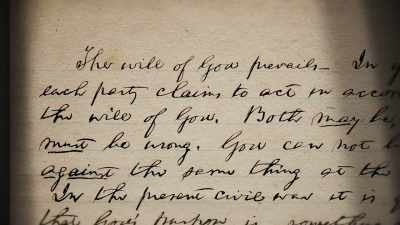 The will of God prevails— In
each party claims to act in accor
the will of God. Both may be,
must be wrong. God can not
against the same thing at the
In the present civil war it is
that God's purpose is something